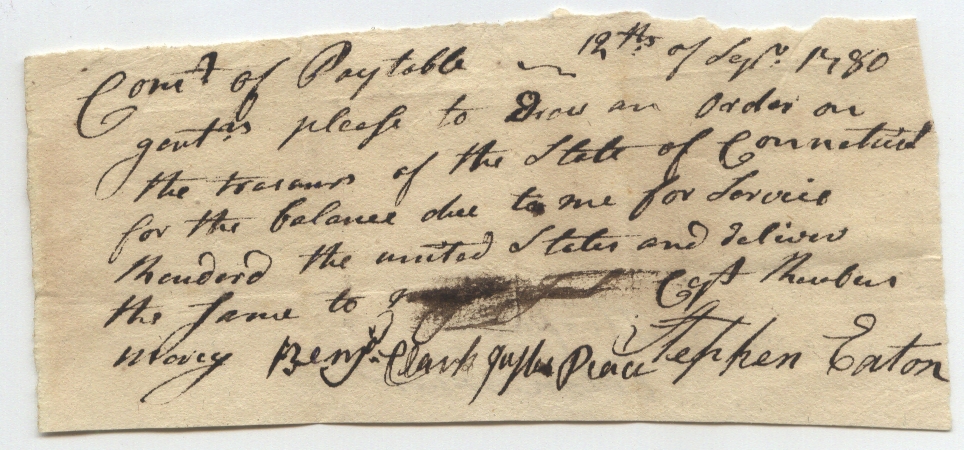 Comt of Paytable 12ths of Sepr. 1780
gentms please to Draw an order on
the tresaurs of the State of Conneticut
for the balance due to me for Service
Renderd the united States and deliver
the same to Capt Reuben
Marcy Benjn. Clark Justis Peace Stephen Eaton